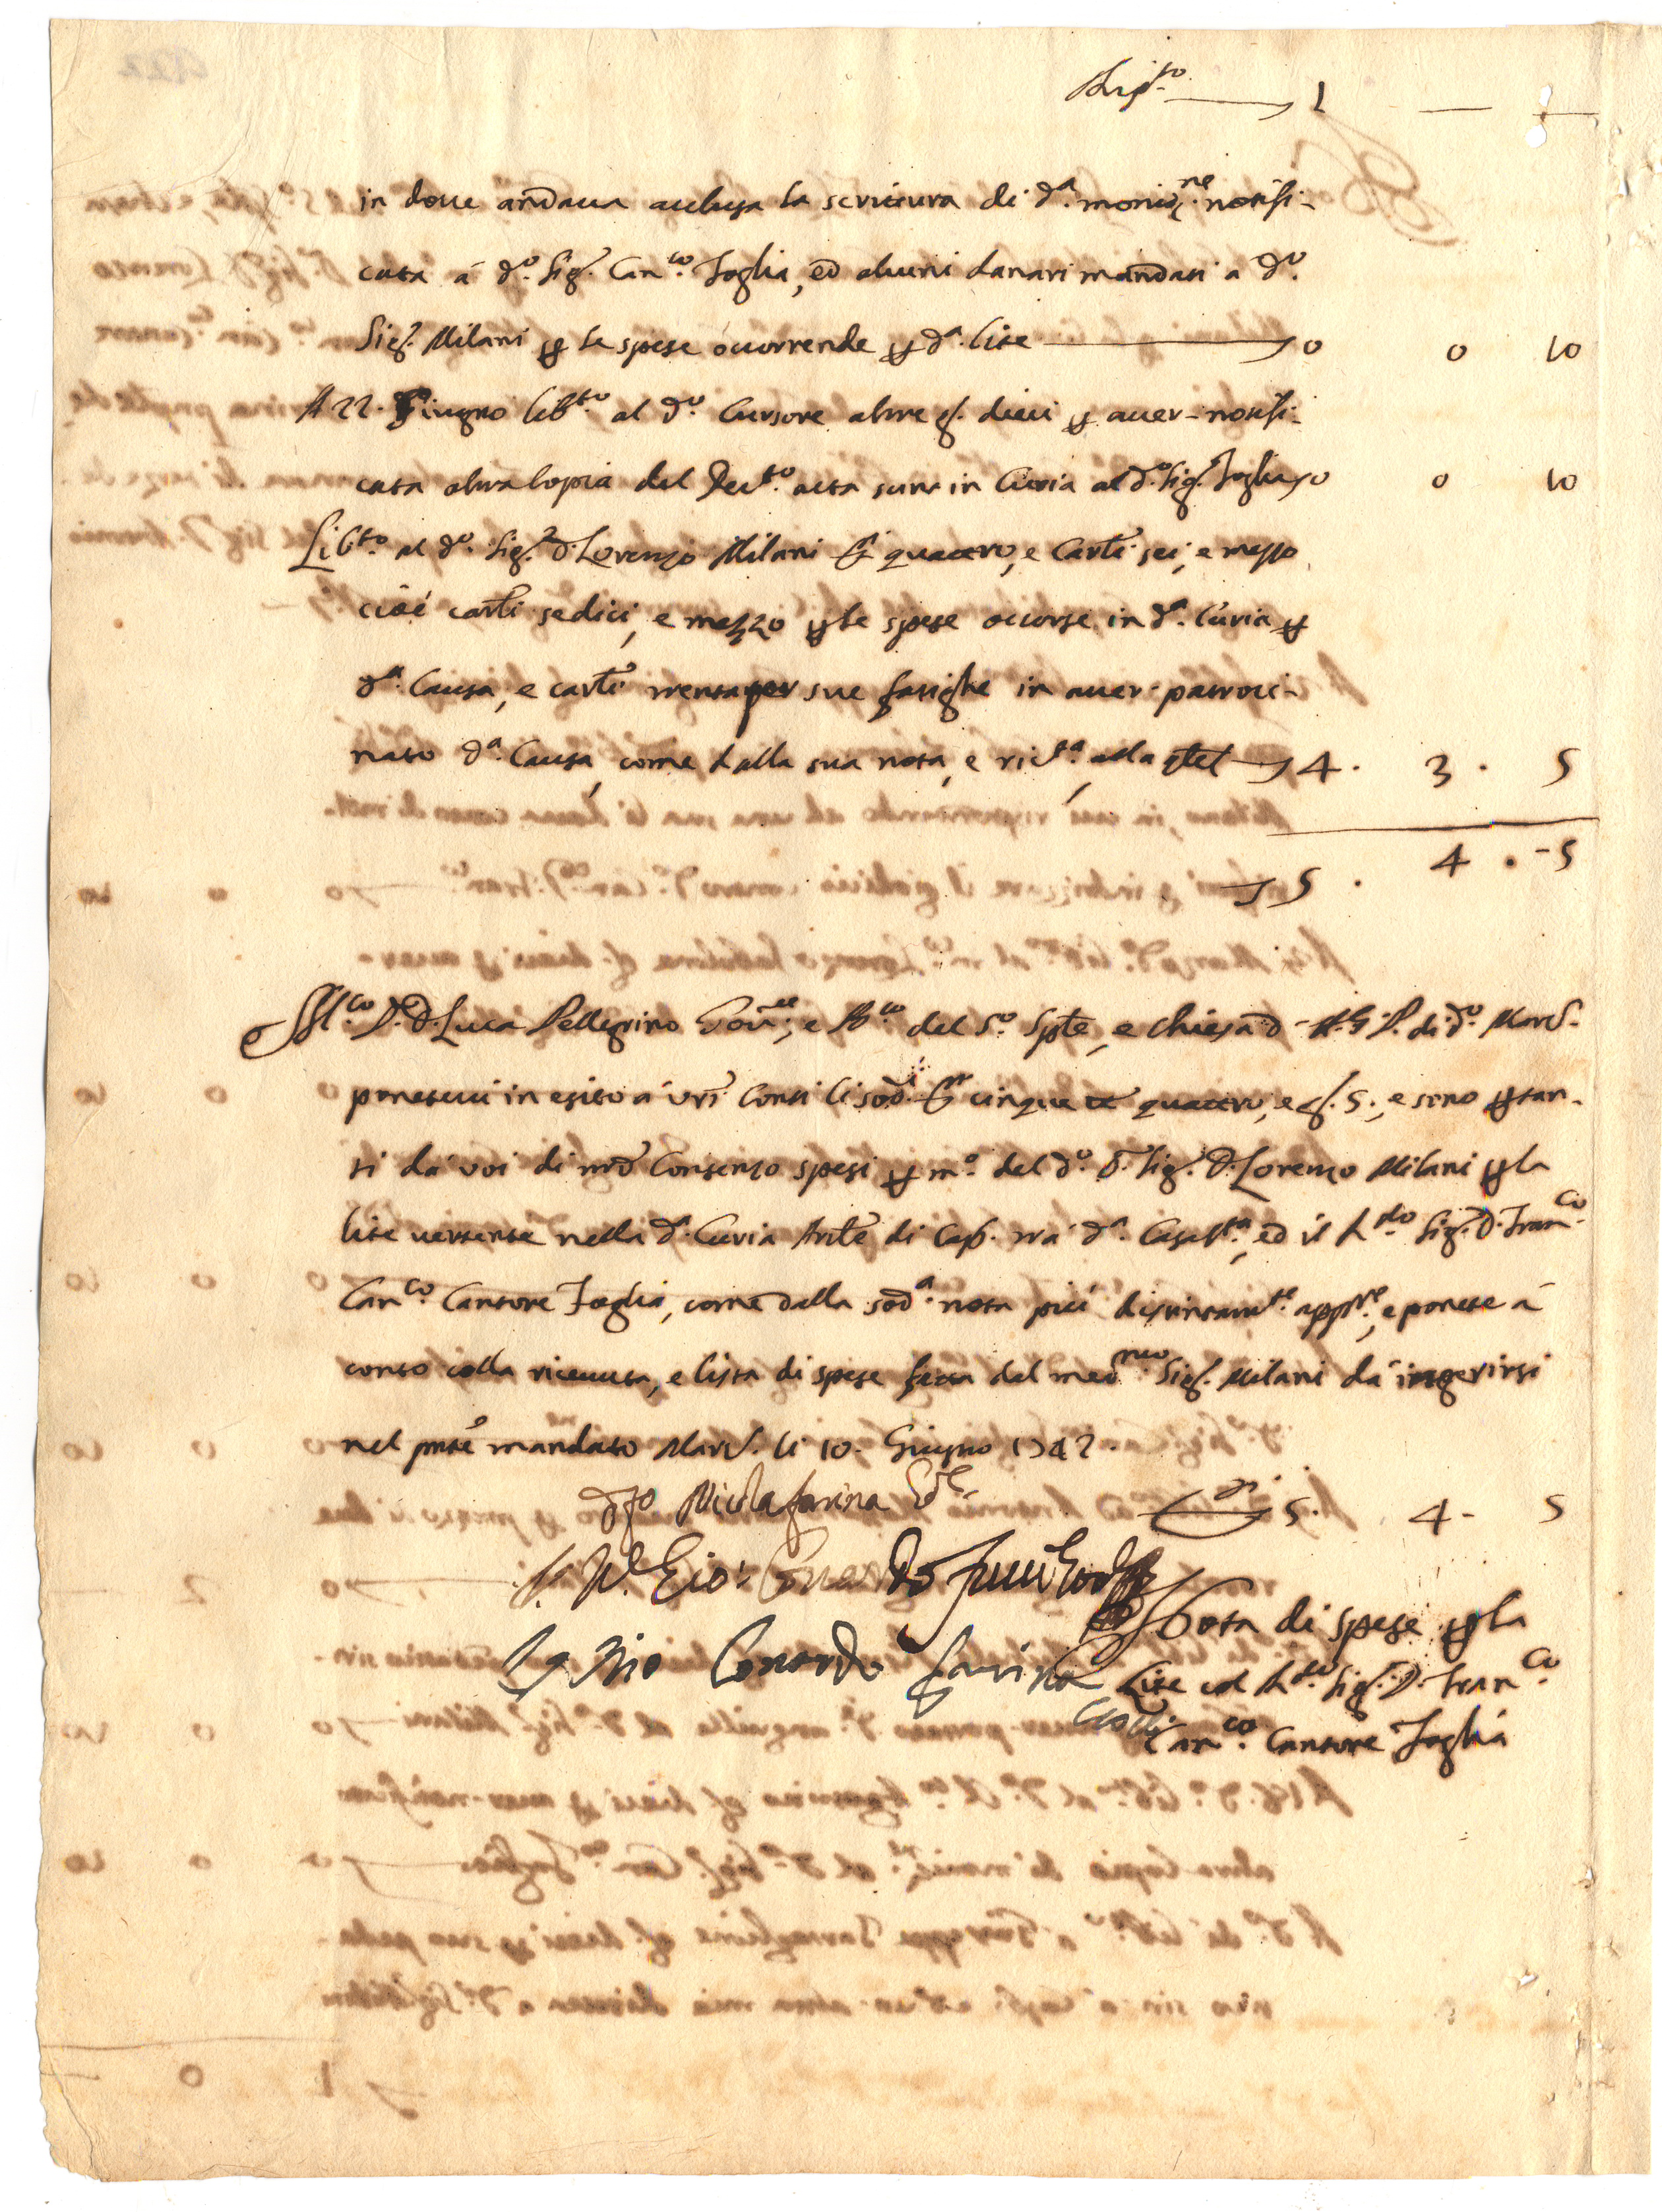 1 —
in doue andaua acclusa la scrittura di d.ª moniz.ne notifi-
cata à d.º Sig.r Can.co Foglia, ed alcuni danari mandati a d.º
Sig.r Milani per le spese ocorrende per d.ª lite 0 0 10
A 22. Giugno lib.to al d.º Cursore altre g. dieci per auer notifi-
cata altra Copia del Dec.to acta sunt in Curia al d.º Sig.r Foglia 0 0 10
Lib.to al d.º Sig.r D. Lorenzo Milani quattro, e Carl.i sei, e mezzo
cioè carl.i sedici, e mezzo per le spese occorse in d.ª Curia per
d.ª Causa, e carl.i trenta per sue fatighe in auer patroci-
nato d.ª Causa, come dalla sua nota, e ric.ta 4. 3. 5
5. 4. -5
D. Luca Pellegrino e del e Chiesa di d.º Marc.
ponetevi in esito a' vri Conti li sod.i cinque quattro, e g. 5., e sono per tan-
ti da voi di nro Consenso spesi per m.º del d.º Sig.r D. Lorenzo Milani per la
lite vertente nella d.ª Curia di Cap. trà d.ª ed il Sig.r D. Fran.co
Can.co Cantore Foglia, come dalla sod.ª nota più distintam.te e ponete à
conto colla riceuuta, e lista di spese fatta dal med.mo Sig.r Milani da ingerirsi
nel pnte mandato Marc. li 10. Giugno 1742.
Nicola farina 5. 4- 5
Io Nio Conardo farina
Nota di spese per la
Lite col Sig.r D. Fran.co
Can.co Cantore Foglia